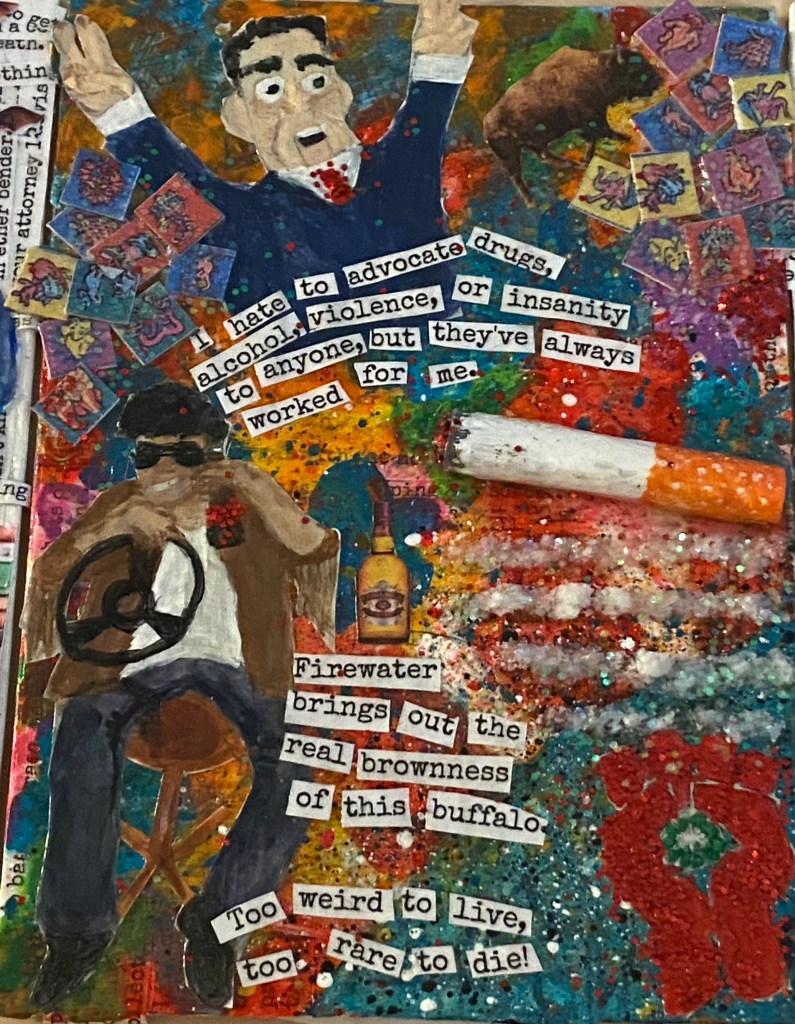 I hate to advocate drugs,
alcohol, violence, or insanity
to anyone, but they've always
worked for me.
Firewater
brings out the
real brownness
of this buffalo.
Too weird to live,
too rare to die!